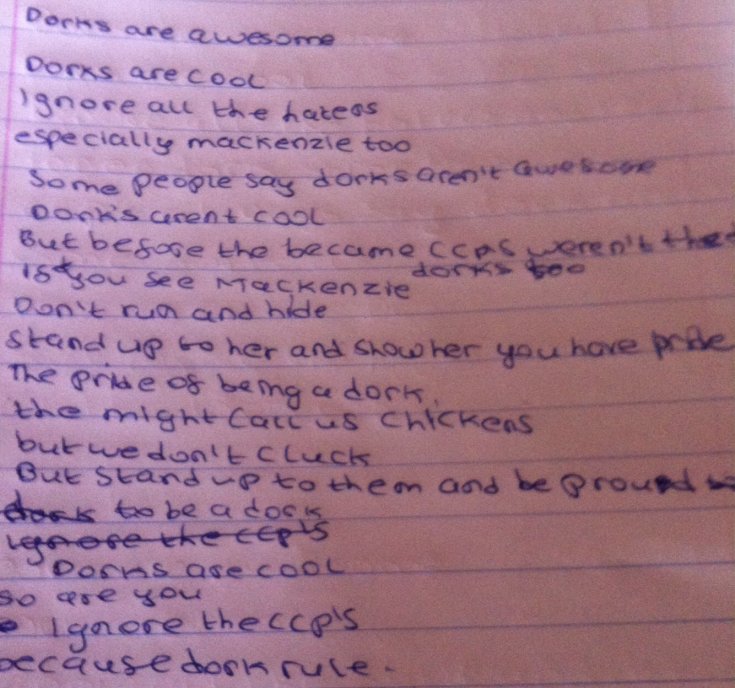 Dorks are awesome
Dorks are cool
Ignore all the haters
especially mackenzie too
Some people say dorks aren't awesome
Dork's arent cool
But before the became CCPS weren't the
dorks too
If you see Mackenzie
Don't run and hide
Stand up to her and show her you have pride
The pride of being a dork.
the might call us chickens
but we don't cluck
But stand up to them and be proud
dork to be a dork
ignore the CCP's
Dorks are cool
so are you
Ignore the CCP's
because dork rule.